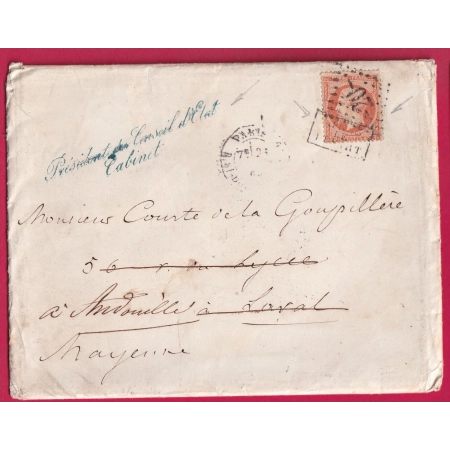 Président du Conseil d'Etat
Cabinet
PARIS
Monsieur Courte de la Goupillère
56 r. du Lycée
à Andouillé à Laval
Mayenne